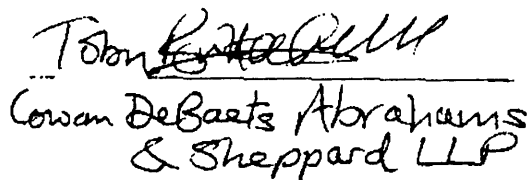 Toby
Cowan DeBaets Abrahams
& Sheppard LLP